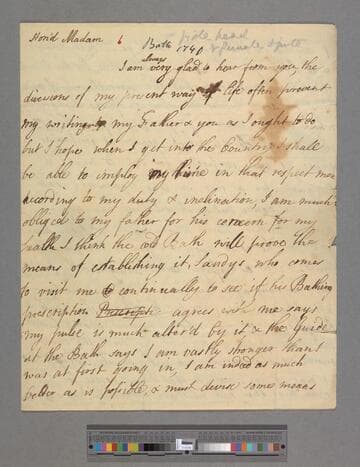 Hon'd Madam 6
Bath
1740
I am always very glad to hear from you, the
divisions of my present way of life often prevent
my writing to my Father & you as I ought to do
but I hope when I get into the Country I shall
be able to imploy my time in that respect more
according to my duty & inclination, I am much
obliged to my father for his concern for my
health I think the old Bath will prove the
means of establishing it, Sandys who comes
to visit me continually to see if his Bathing
prescription agrees with me says
my pulse is much alter'd by it & the guide
at the Bath says I am vastly stronger than I
was at first going in, I am indeed as much
better as is possible, & must devise some means